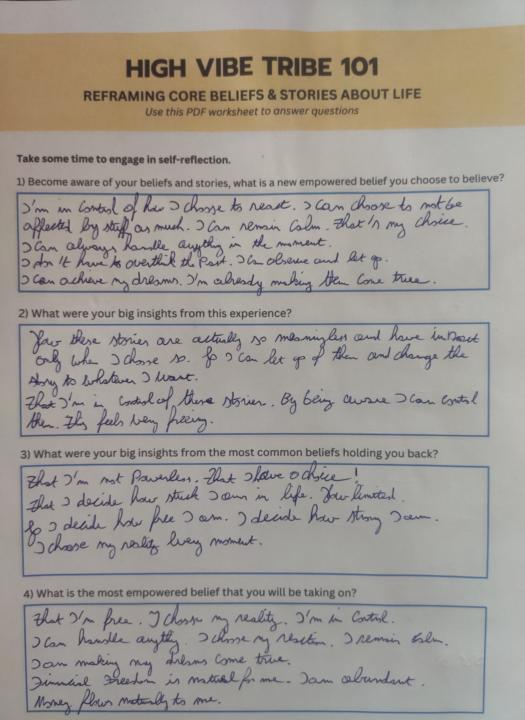 HIGH VIBE TRIBE 101
REFRAMING CORE BELIEFS & STORIES ABOUT LIFE
Use this PDF worksheet to answer questions
Take some time to engage in self-reflection.
1) Become aware of your beliefs and stories, what is a new empowered belief you choose to believe?
I'm in control of how I choose to react. I can choose to not be
affected by stuff as much. I can remain calm. That's my choice.
I can always handle anythg in the moment.
I don't have to overthink the Past. I can observe and let go.
I can achieve my dreams. I'm already making them come true.
2) What were your big insights from this experience?
How these stories are actually so meaningless and have impact
only when I choose so. So I can let go of them and change the
story to whatever I want.
That I'm in control of these stories. By being aware I can control
them. This feels very freeing.
3) What were your big insights from the most common beliefs holding you back?
That I'm not Powerless. That I have a choice!
That I decide how stuck I am in life. How limited.
So I decide how free I am. I decide how strong I am.
I choose my reality every moment.
4) What is the most empowered belief that you will be taking on?
That I'm free. I choose my reality. I'm in Control.
I can handle anythg. I choose my reaction. I remain calm.
I am making my dreams come true.
Financial Freedom is natural for me. I am abundant.
Money flows naturally to me.